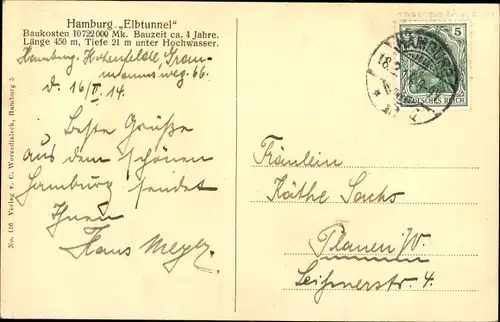 Hamburg „Elbtunnel"
Baukosten 10722000 Mk. Bauzeit ca. 4 Jahre.
Länge 450 m, Tiefe 21 m unter Hochwasser.
Hamburg. Hohenfelde, Grau-
mannsweg. 66.
d. 16/II. 14.
Beste Grüße
aus dem schönen
Hamburg sendet
Ihnen
Hans Meyer.
No. 116 Verlag v. C. Worzedialeck, Hamburg 5
HAMBURG
18.2
5
DEUTSCHES REICH
Fräulein
Käthe Sachs
Plauen i/V.
Leißnerstr. 4.